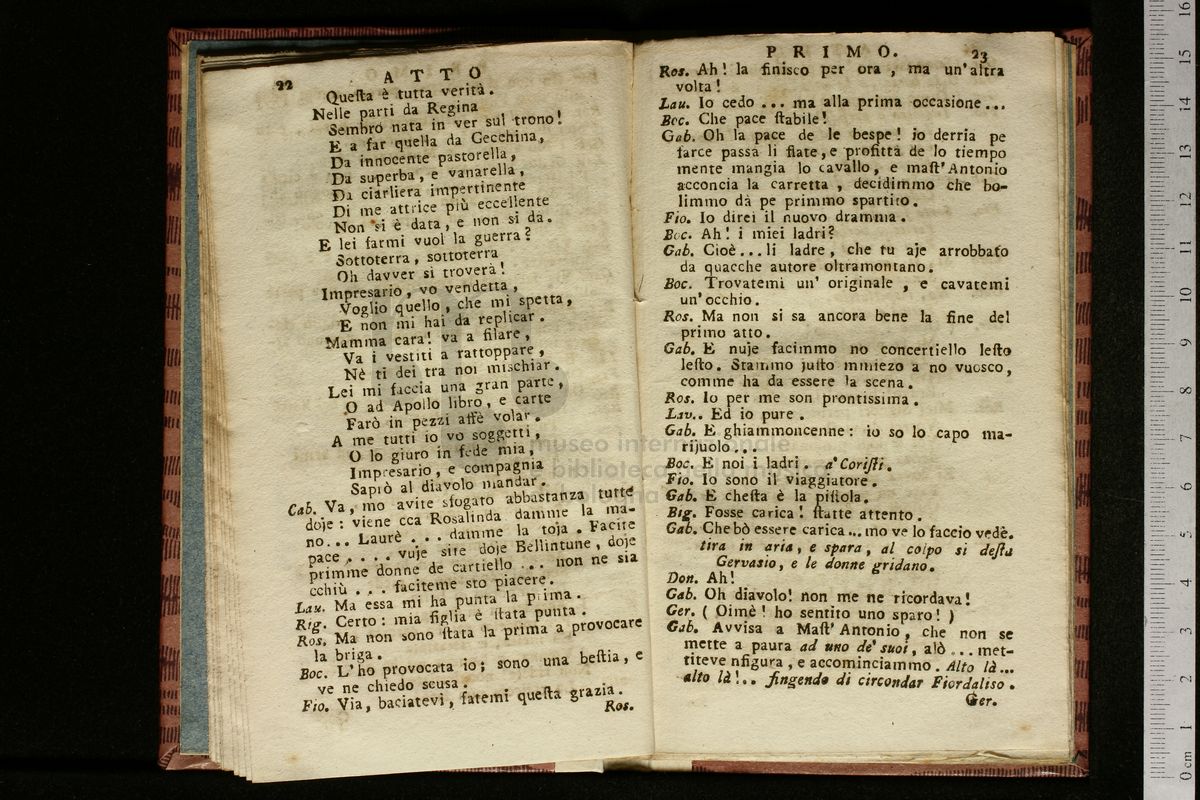 22
ATTO
Queſta è tutta verità.
Nelle parti da Regina
Sembro nata in ver sul trono!
E a far quella da Cecchina,
Da innocente pastorella,
Da superba, e vanarella,
Da ciarliera impertinente
Di me attrice più eccellente
Non si è data, e non si da.
E lei farmi vuol la guerra?
Sottoterra, sottoterra
Oh davver si troverà!
Impresario, vo vendetta,
Voglio quello, che mi spetta,
E non mi hai da replicar.
Mamma cara! va a filare,
Va i vestiti a rattoppare,
Nè ti dei tra noi mischiar.
Lei mi faccia una gran parte,
O ad Apollo libro, e carte
Farò in pezzi affè volar.
A me tutti io vo soggetti,
O lo giuro in fede mia,
Impresario, e compagnia
Sapiò al diavolo mandar.
Gab. Va, mo avite sfogato abbastanza tutte
doje: viene cca Rosalinda damme la ma-
no... Laurè ... damme la toja. Facite
pace .... vuje site doje Bellintune, doje
primme donne de cartiello ... non ne sia
cchiù ... faciteme sto piacere.
Lau. Ma essa mi ha punta la prima.
Big. Certo: mia figlia è ſtata punta.
Ros. Ma non sono ſtata la prima a provocare
la briga.
Boc. L'ho provocata io; sono una beſtia, e
ve ne chiedo scusa.
Fio. Via, baciatevi, fatemi queſta grazia.
Ros.
PRIMO.
23
Ros. Ah! la finisco per ora, ma un'altra
volta!
Lau. Io cedo ... ma alla prima occasione...
Boc. Che pace ſtabile!
Gab. Oh la pace de le bespe! io derria pe
farce passa li fiate, e profittà de lo tiempo
mente mangia lo cavallo, e maſt'Antonio
acconcia la carretta, decidimmo che bo-
limmo dà pe primmo spartito.
Fio. Io direi il nuovo dramma.
Boc. Ah! i miei ladri?
Gab. Cioè...li ladre, che tu aje arrobbato
da quacche autore oltramontano.
Boc. Trovatemi un' originale, e cavatemi
un'occhio.
Ros. Ma non si sa ancora bene la fine del
primo atto.
Gab. E nuje facimmo no concertiello leſto
leſto. Stammo juſto mmiezo a no vuosco,
comme ha da essere la scena.
Ros. Io per me son prontissima.
Lau.. Ed io pure.
Gab. E ghiammoncenne: io so lo capo ma-
rijuolo...
Boc. E noi i ladri. a' Coriſti.
Fio. Io sono il viaggiatore.
Gab. E cheſta è la piſtola.
Big. Fosse carica! ſtatte attento.
Gab. Che bò essere carica...mo ve lo faccio vedè.
tira in aria, e spara, al colpo si deſta
Gervasio, e le donne gridano.
Don. Ah!
Gab. Oh diavolo! non me ne ricordava!
Ger. ( Oimè! ho sentito uno sparo! )
Gab. Avvisa a Maſt' Antonio, che non se
mette a paura ad uno de' suoi, alò ... met-
titeve nfigura, e accominciammo. Alto là...
alto là!.. fingendo di circondar Fiordaliso.
Ger.
museo internazionale
e biblioteca della musica
bologna
0 cm 1 2 3 4 5 6 7 8 9 10 11 12 13 14 15 16